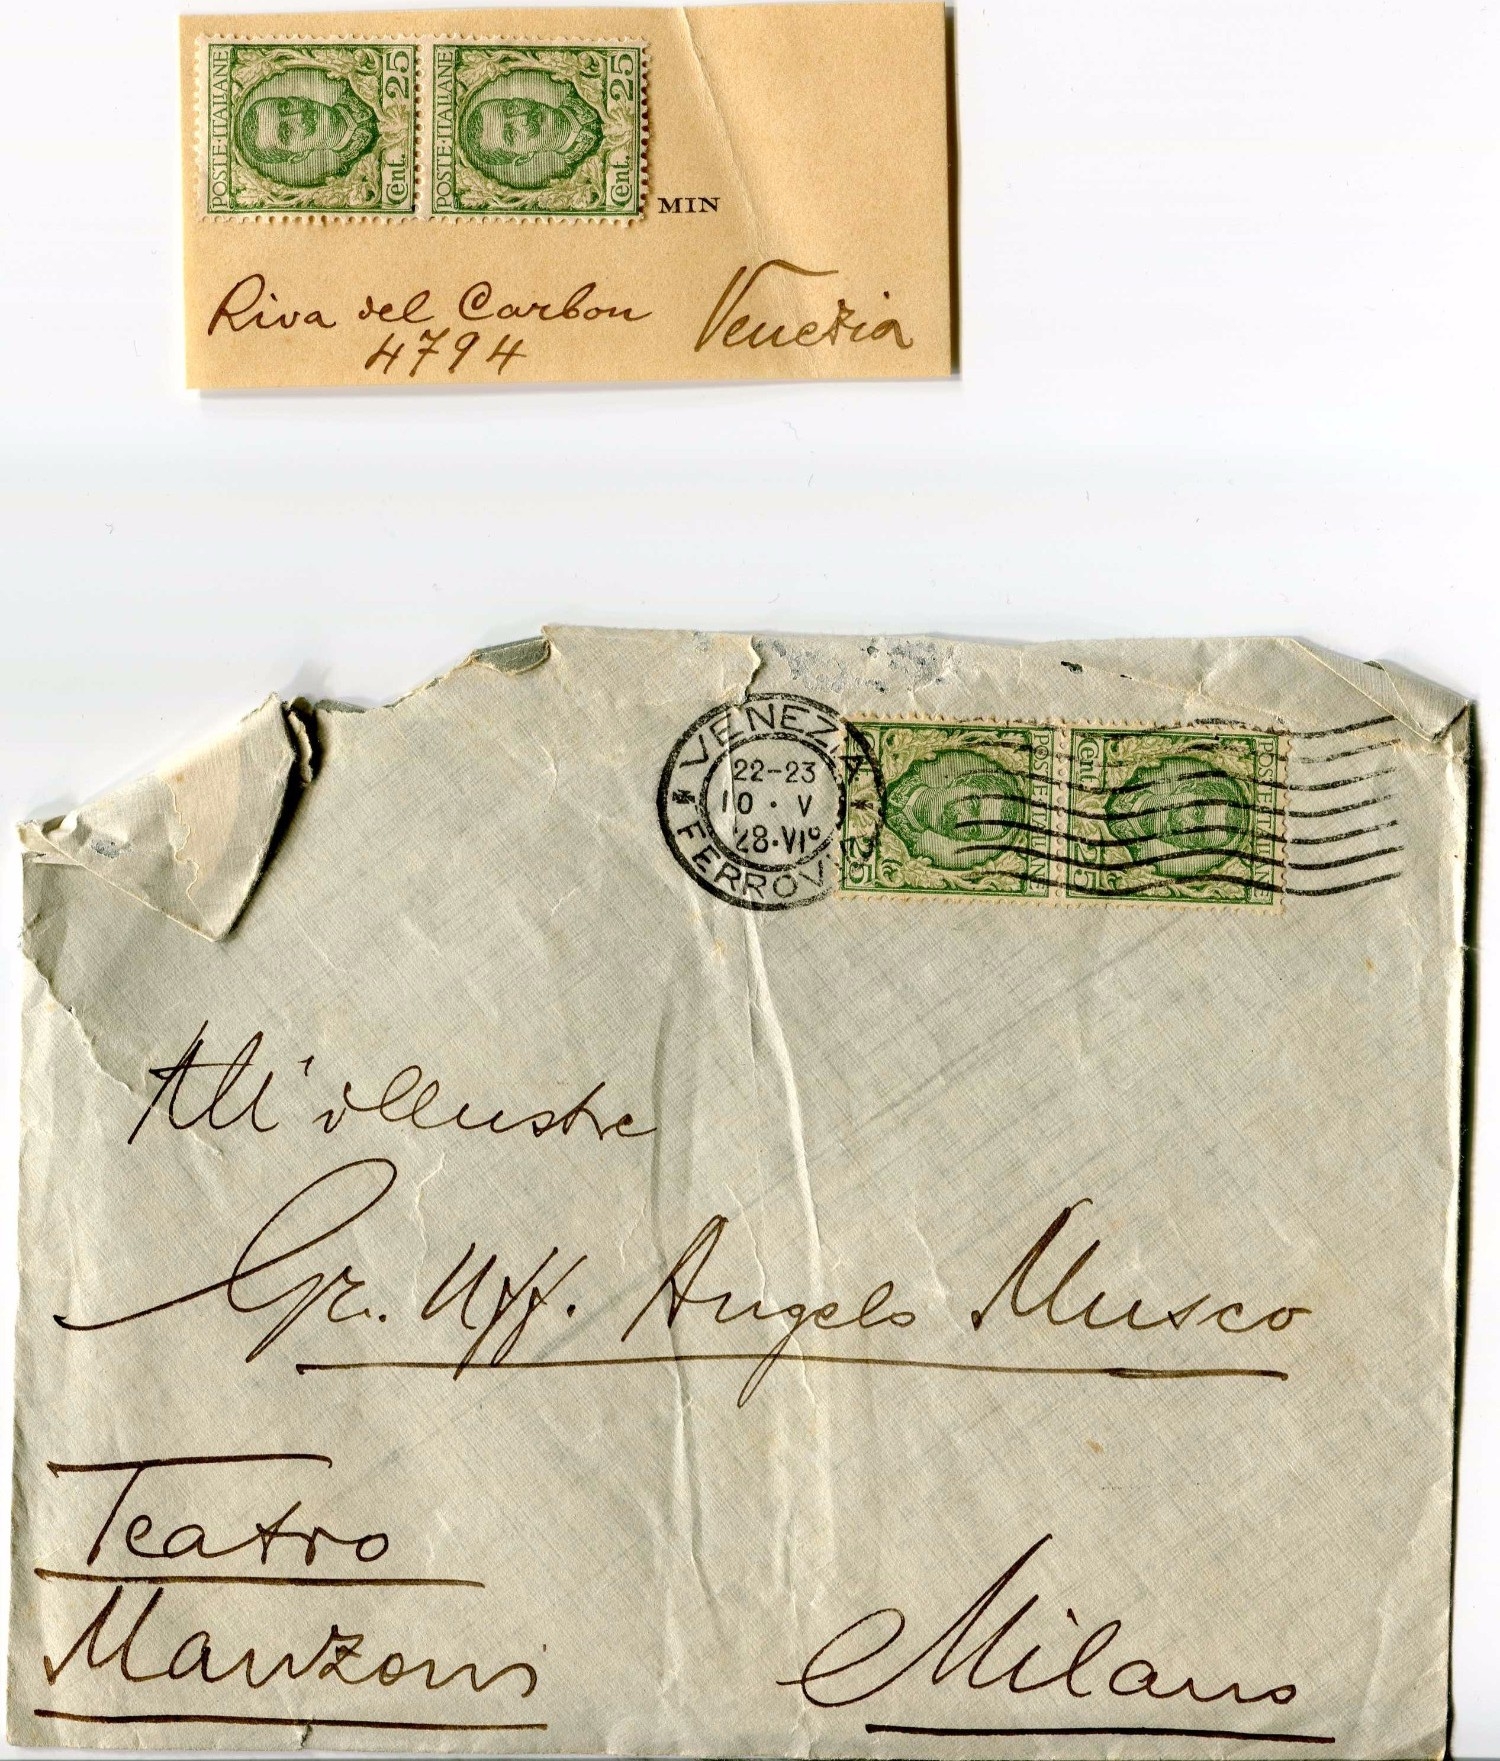 POSTE·ITALIANE Cent. 25
POSTE·ITALIANE Cent. 25
MIN
Riva del Carbon
4794
Venezia
VENEZIA
22-23
10 · V
28·VI°
FERROVIE
POSTE·ITALIANE Cent. 25
POSTE·ITALIANE Cent. 25
All'illustre
Gr. Uff. Angelo Musco
Teatro
Manzoni
Milano